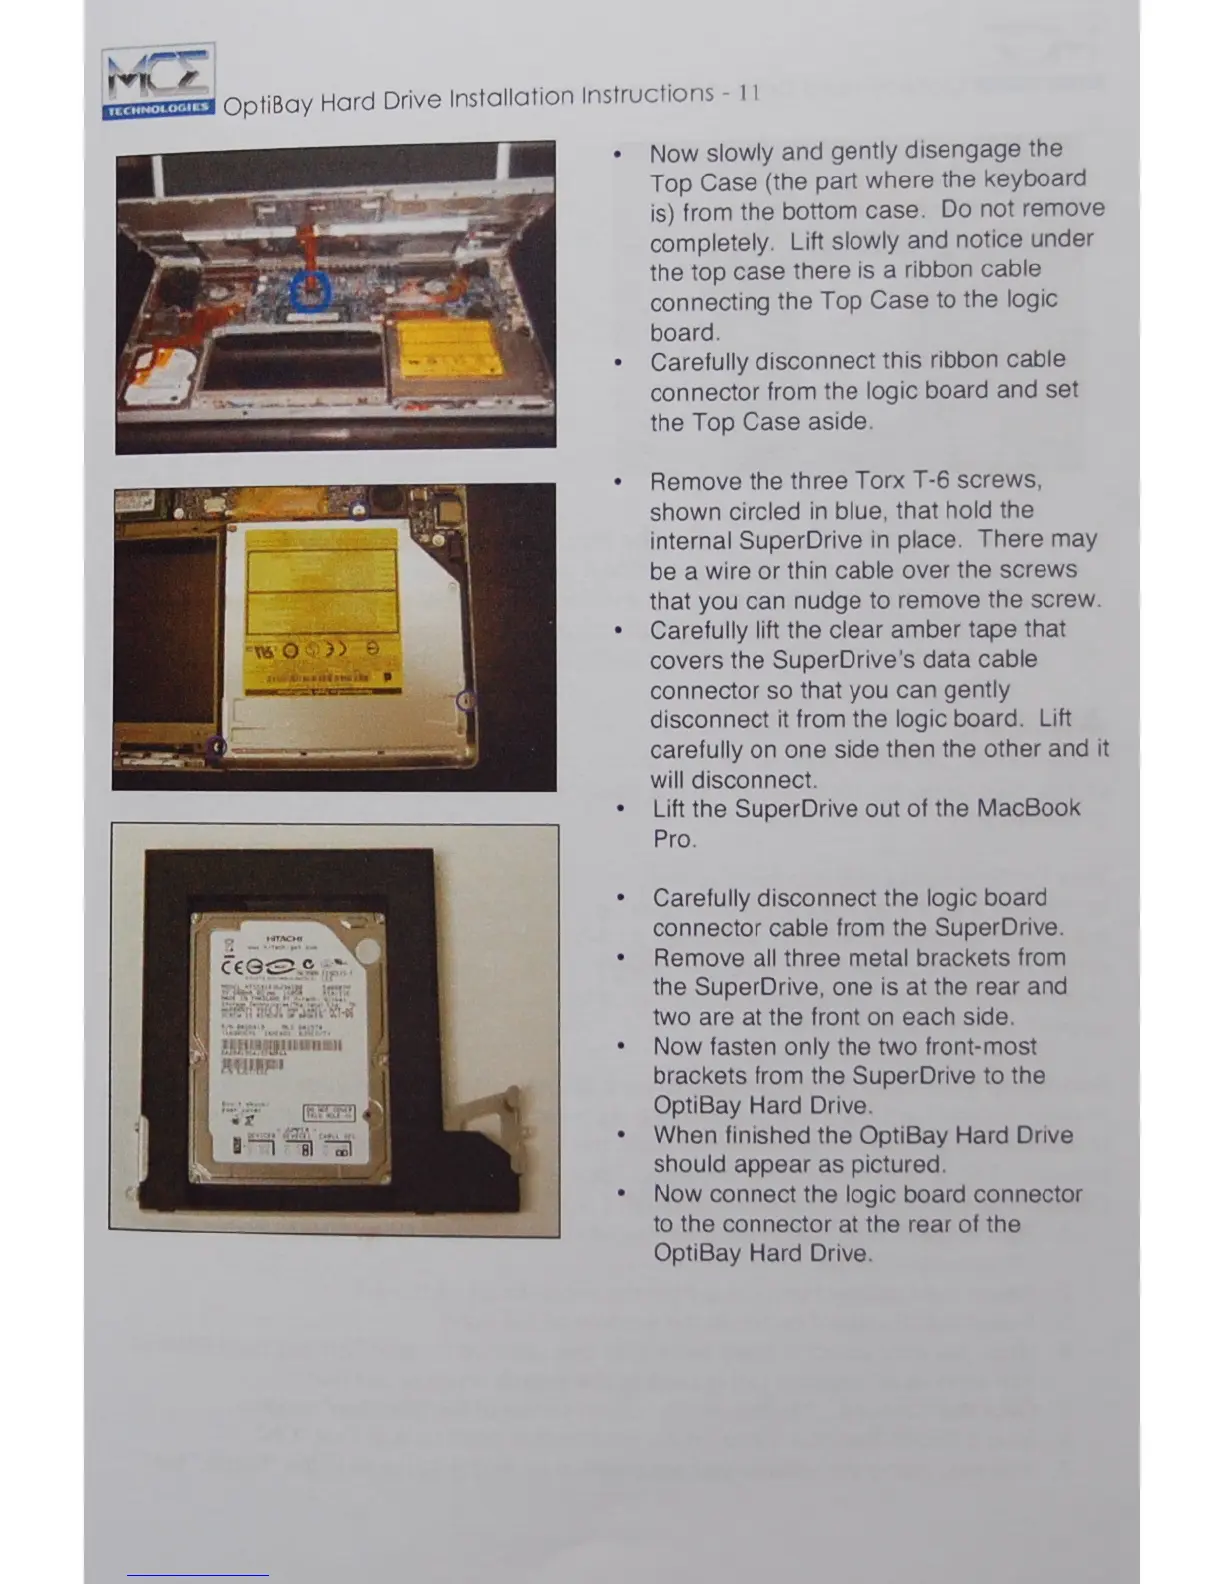 MCE
TECHNOLOGIES
OptiBay Hard Drive Installation Instructions - 11
• Now slowly and gently disengage the
Top Case (the part where the keyboard
is) from the bottom case. Do not remove
completely. Lift slowly and notice under
the top case there is a ribbon cable
connecting the Top Case to the logic
board.
• Carefully disconnect this ribbon cable
connector from the logic board and set
the Top Case aside.
• Remove the three Torx T-6 screws,
shown circled in blue, that hold the
internal SuperDrive in place. There may
be a wire or thin cable over the screws
that you can nudge to remove the screw.
• Carefully lift the clear amber tape that
covers the SuperDrive's data cable
connector so that you can gently
disconnect it from the logic board. Lift
carefully on one side then the other and it
will disconnect.
• Lift the SuperDrive out of the MacBook
Pro.
• Carefully disconnect the logic board
connector cable from the SuperDrive.
• Remove all three metal brackets from
the SuperDrive, one is at the rear and
two are at the front on each side.
• Now fasten only the two front-most
brackets from the SuperDrive to the
OptiBay Hard Drive.
• When finished the OptiBay Hard Drive
should appear as pictured.
• Now connect the logic board connector
to the connector at the rear of the
OptiBay Hard Drive.
HITACHI
DO NOT COVER
THIS HOLE
JUMPER